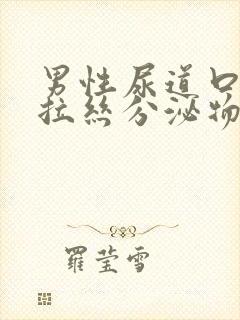 男性尿道口
拉絲分泌物
羅瑩雪